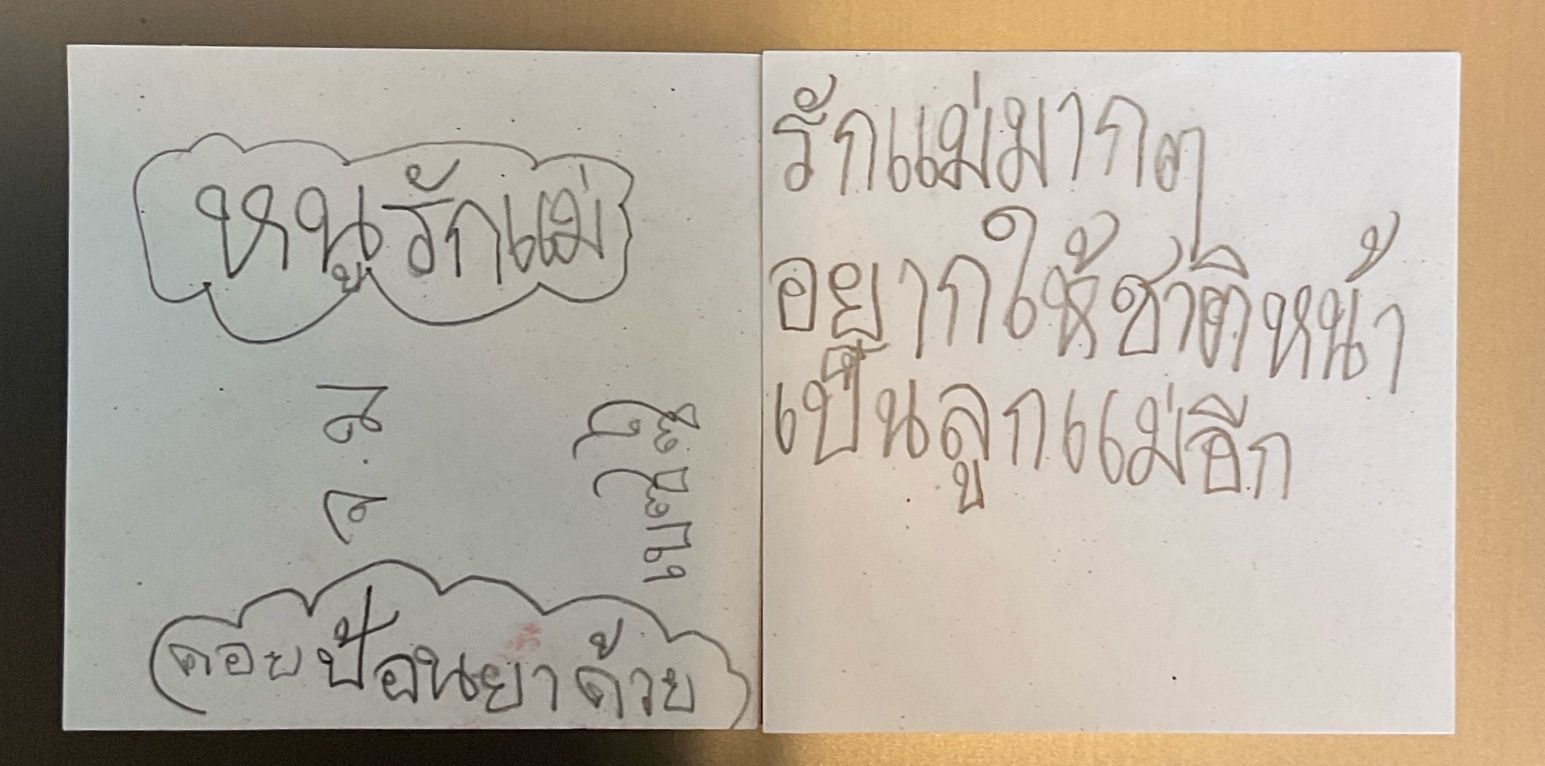 หนูรักแม่
จ.ส
คอยป้อนยาด้วย
รักแม่มากๆ
อยากให้ชาติหน้า
เป็นลูกแม่อีก